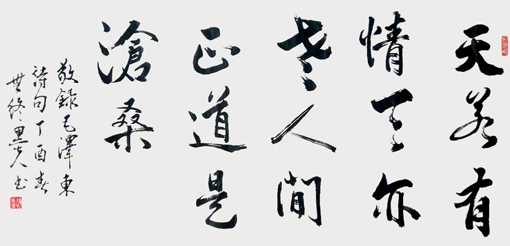 天若有
情天亦
老人间
正道是
滄桑
敬錄毛澤東
詩句丁酉春
墨人书